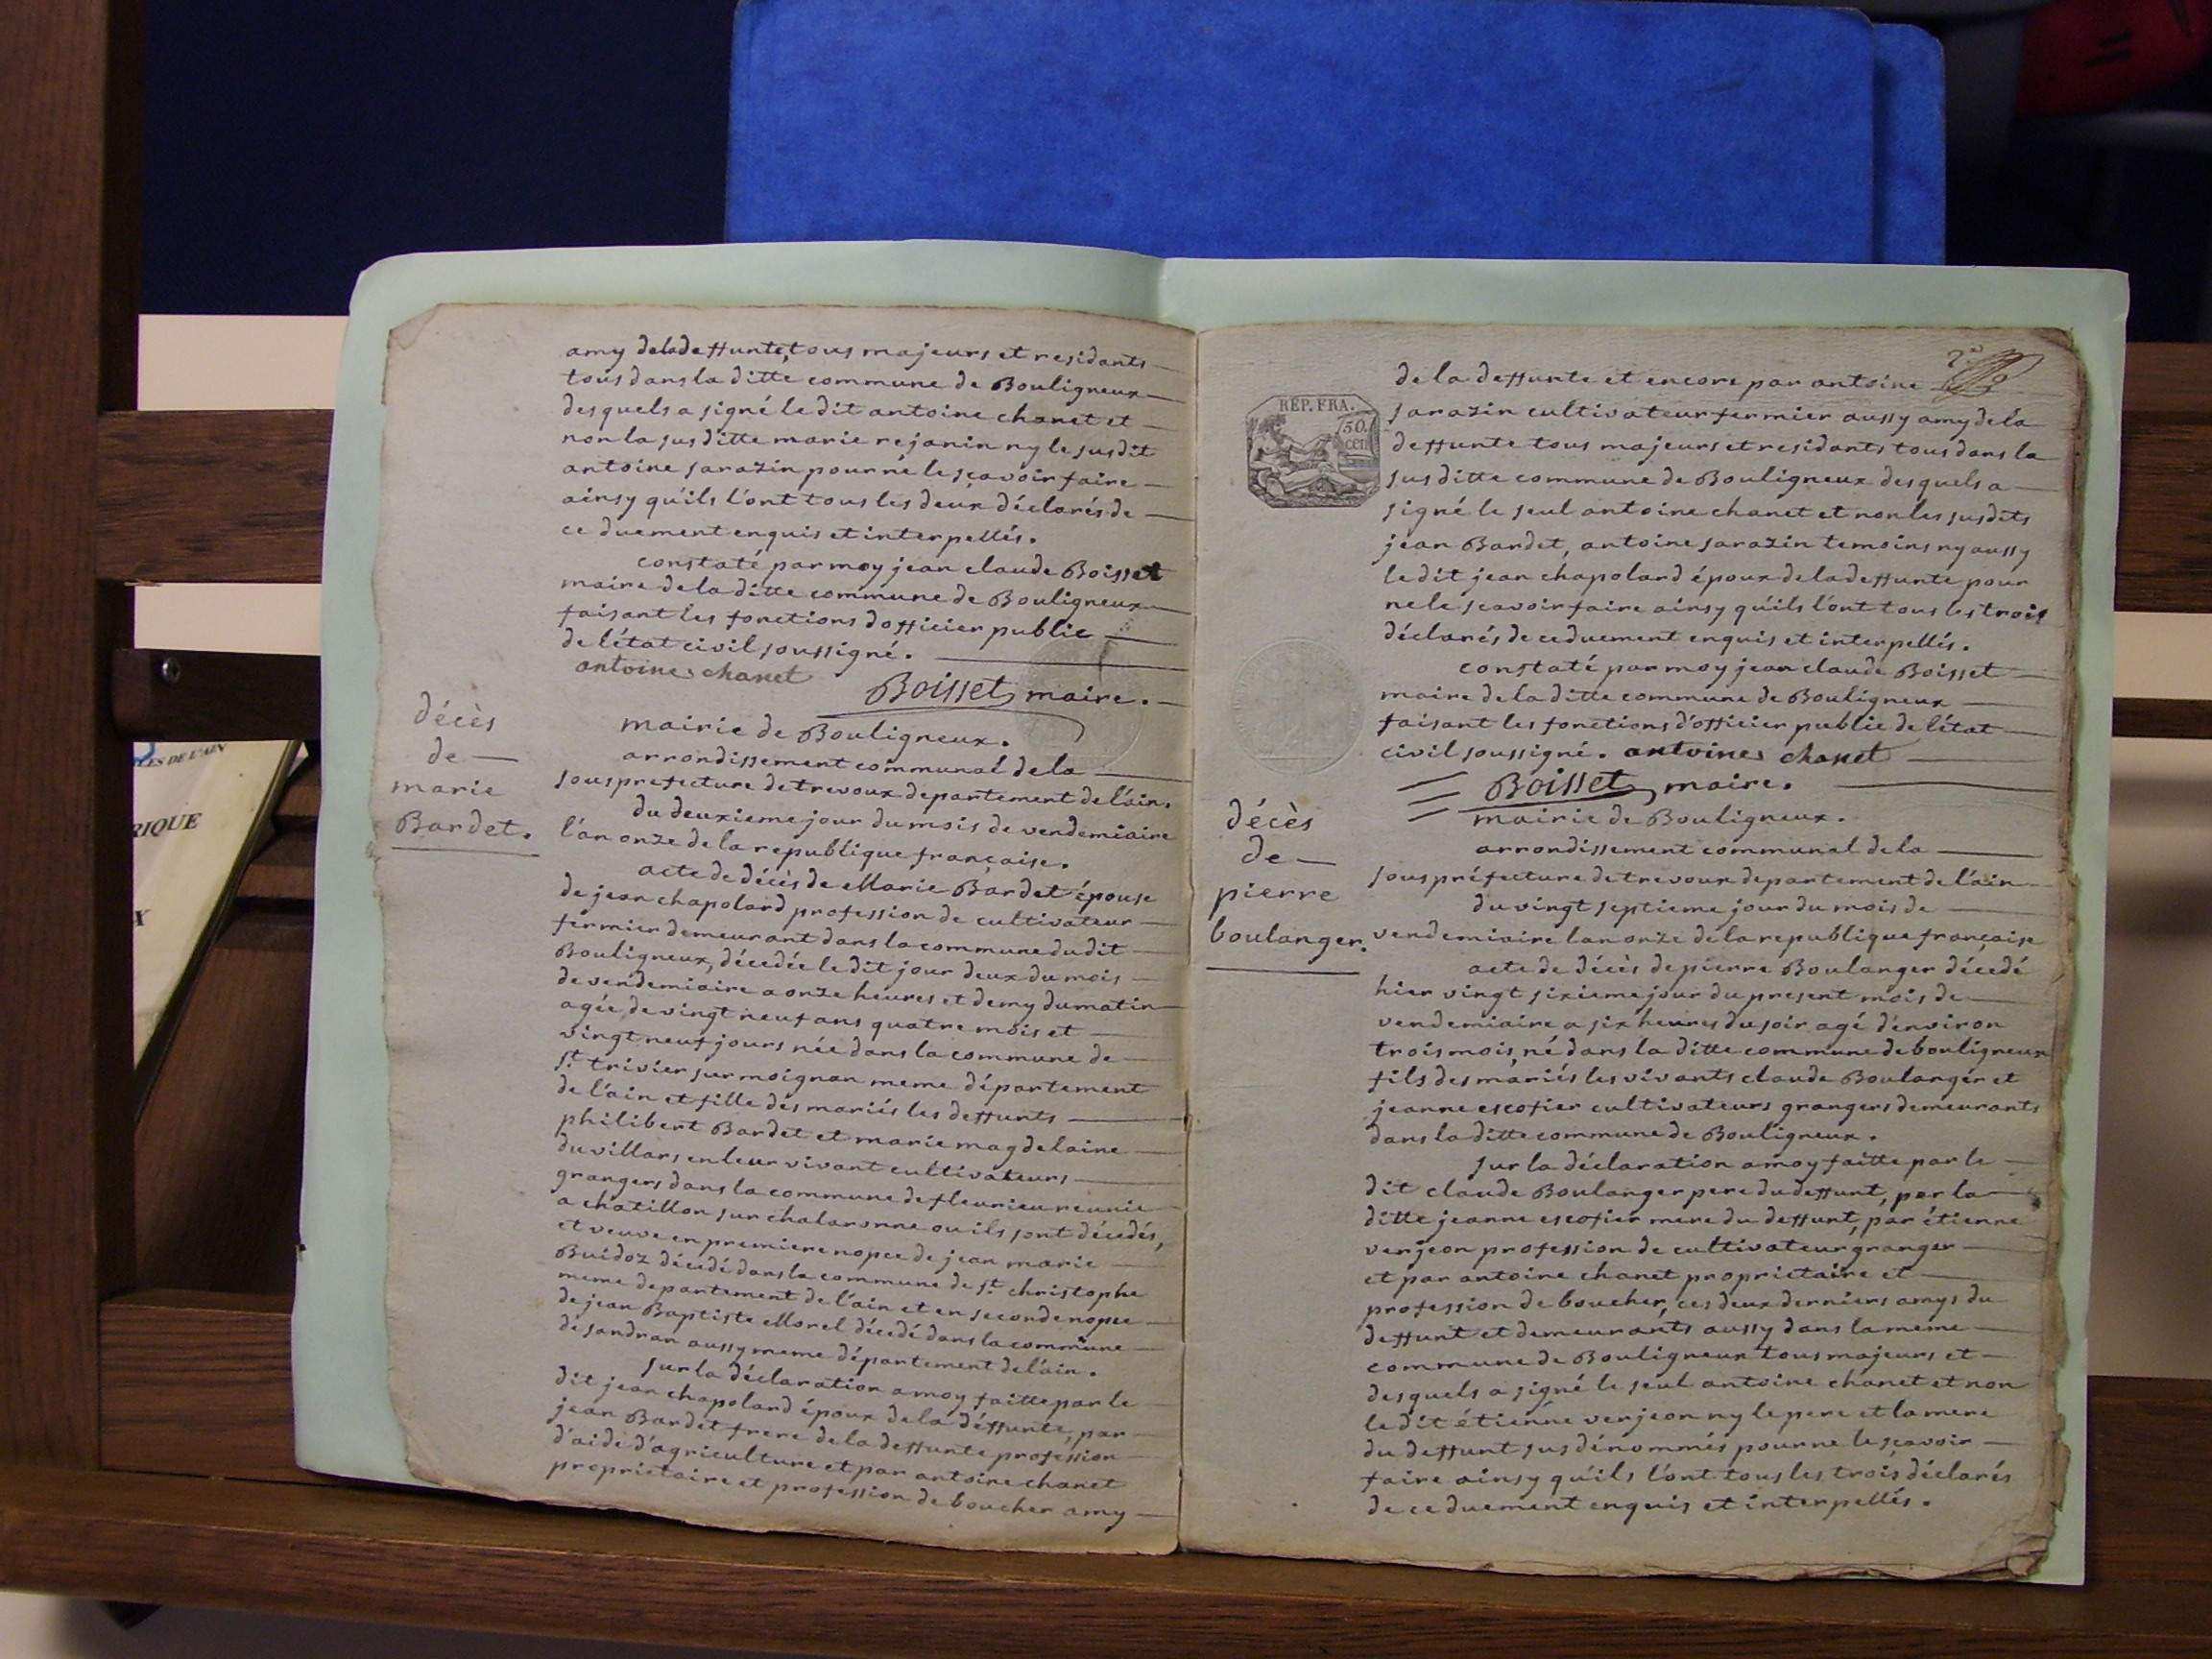 amy deladeffunte, tous majeurs et residants
tous dans la ditte commune de Bouligneux
desquels a signé le dit antoine chanet et
non la sus ditte marie rejanin ny le susdit
antoine sarazin pour ne le sçavoir faire
ainsy qu'ils l'ont tous les deux déclarés de
ce duement enquis et interpellés.
constaté par moy jean claude Boisset
maire de la ditte commune de Bouligneux
faisant les fonctions d'officier public
de l'état civil soussigné.
antoine chanet
Boisset maire.
décès
de
marie
Bardet.
mairie de Bouligneux.
arrondissement communal de la
sousprefecture de trevoux departement de l'ain.
du deuxieme jour du mois de vendemiaire
l'an onze de la republique française.
acte de décès de Marie Bardet épouse
de jean chapolard profession de cultivateur
fermier demeurant dans la commune du dit
Bouligneux, décedée le dit jour deux du mois
de vendemiaire a onze heures et demy du matin
agée de vingt neuf ans quatre mois et
vingt neuf jours née dans la commune de
St. trivier sur moignan meme département
de l'ain et fille des mariés les deffunts
philibert Bardet et marie magdelaine
du villars, en leur vivant cultivateurs
grangers dans la commune de fleurieu reunie
a chatillon sur chalaronne ou ils sont décedés,
et veuve en premiere nopce de jean marie
Buidoz décedé dans la commune de St. christophe
meme departement de l'ain et en seconde nopce
de jean Baptiste Morel décedé dans la commune
de sandran aussy meme département de l'ain.
sur la déclaration a moy faitte par le
dit jean chapolard époux de la deffunte, par
jean Bardet frere de la deffunte profession
d'aide d'agriculture et par antoine chanet
propriétaire et profession de boucher amy
REP. FRA.
50.
cen
de la deffunte et encore par antoine
sarazin cultivateur fermier aussy amy de la
deffunte tous majeurs et residants tous dans la
sus ditte commune de Bouligneux desquels a
signé le seul antoine chanet et non les susdits
jean Bardet, antoine sarazin temoins ny aussy
le dit jean chapolard époux de la deffunte pour
ne le sçavoir faire ainsy qu'ils l'ont tous les trois
déclarés de ce duement enquis et interpellés.
constaté par moy jean claude Boisset
maire de la ditte commune de Bouligneux
faisant les fonctions d'officier public de l'état
civil soussigné. antoine chanet
Boisset maire.
décès
de
pierre
boulanger.
mairie de Bouligneux.
arrondissement communal de la
souspréfecture de trevoux departement de l'ain
du vingt septieme jour du mois de
vendemiaire l'an onze de la republique française
acte de décès de pierre Boulanger décedé
hier vingt sixieme jour du present mois de
vendemiaire a six heures du soir agé d'environ
trois mois, né dans la ditte commune de bouligneux
fils des mariés les vivants claude Boulanger et
jeanne escofier cultivateurs grangers demeurants
dans la ditte commune de Bouligneux.
sur la déclaration a moy faitte par le
dit claude Boulanger pere du deffunt, par la
ditte jeanne escofier mere du deffunt, par étienne
verjeon profession de cultivateur granger
et par antoine chanet proprietaire et
profession de boucher, ces deux derniers amys du
deffunt et demeurants aussy dans la meme
commune de Bouligneux tous majeurs et
desquels a signé le seul antoine chanet et non
le dit étienne verjeon ny le pere et la mere
du deffunt sus dénommés pour ne le sçavoir
faire ainsy qu'ils l'ont tous les trois déclarés
de ce duement enquis et interpellés.
LES DE L'AIN
RIQUE
X